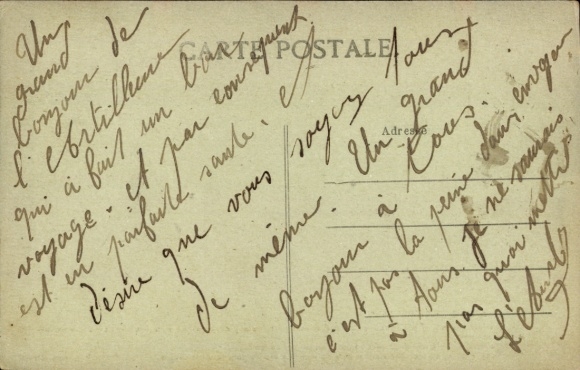 CARTE POSTALE
Adresse
Un
grand
bonjour de
l'Artilleur
qui à fait un bon
voyage. et par conséquent
est en parfaite santé. et
désire que vous soyez tous
de même. Un grand
bonjour à tous.
c'est pas la peine d'en envoyer
à tous. Je ne saurais
pas quoi mettre